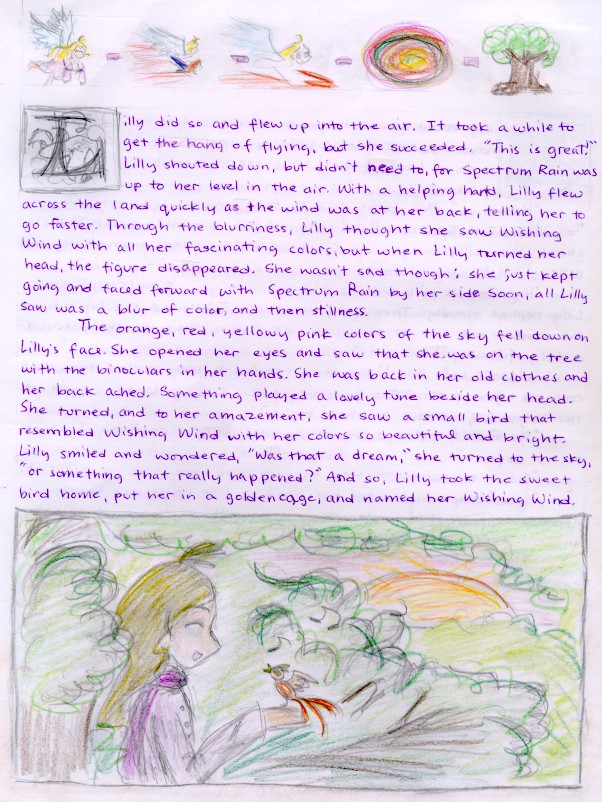 Lilly did so and flew up into the air. It took a while to
get the hang of flying, but she succeeded. "This is great!"
Lilly shouted down, but didn't need to, for Spectrum Rain was
up to her level in the air. With a helping hand, Lilly flew
across the land quickly as the wind was at her back, telling her to
go faster. Through the blurriness, Lilly thought she saw Wishing
Wind with all her fascinating colors, but when Lilly turned her
head, the figure disappeared. She wasn't sad though; she just kept
going and faced forward with Spectrum Rain by her side. Soon, all Lilly
saw was a blur of color, and then stillness.
The orange, red, yellowy pink colors of the sky fell down on
Lilly's face. She opened her eyes and saw that she was on the tree
with the binoculars in her hands. She was back in her old clothes and
her back ached. Something played a lovely tune beside her head.
She turned, and to her amazement, she saw a small bird that
resembled Wishing Wind with her colors so beautiful and bright.
Lilly smiled and wondered, "Was that a dream," she turned to the sky,
"or something that really happened?" And so, Lilly took the sweet
bird home, put her in a golden cage, and named her Wishing Wind.